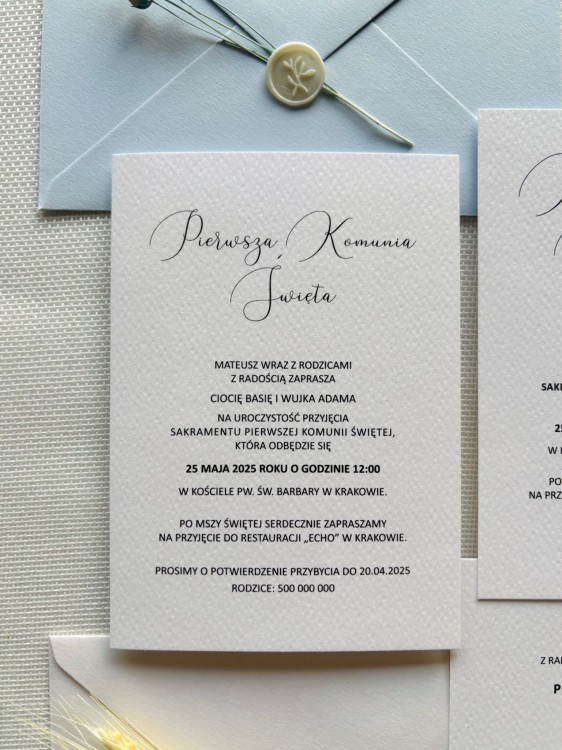 Pierwsza Komunia
Święta
MATEUSZ WRAZ Z RODZICAMI
Z RADOŚCIĄ ZAPRASZA
CIOCIĘ BASIĘ I WUJKA ADAMA
NA UROCZYSTOŚĆ PRZYJĘCIA
SAKRAMENTU PIERWSZEJ KOMUNII ŚWIĘTEJ,
KTÓRA ODBĘDZIE SIĘ
25 MAJA 2025 ROKU O GODZINIE 12:00
W KOŚCIELE PW. ŚW. BARBARY W KRAKOWIE.
PO MSZY ŚWIĘTEJ SERDECZNIE ZAPRASZAMY
NA PRZYJĘCIE DO RESTAURACJI „ECHO” W KRAKOWIE.
PROSIMY O POTWIERDZENIE PRZYBYCIA DO 20.04.2025
RODZICE: 500 000 000